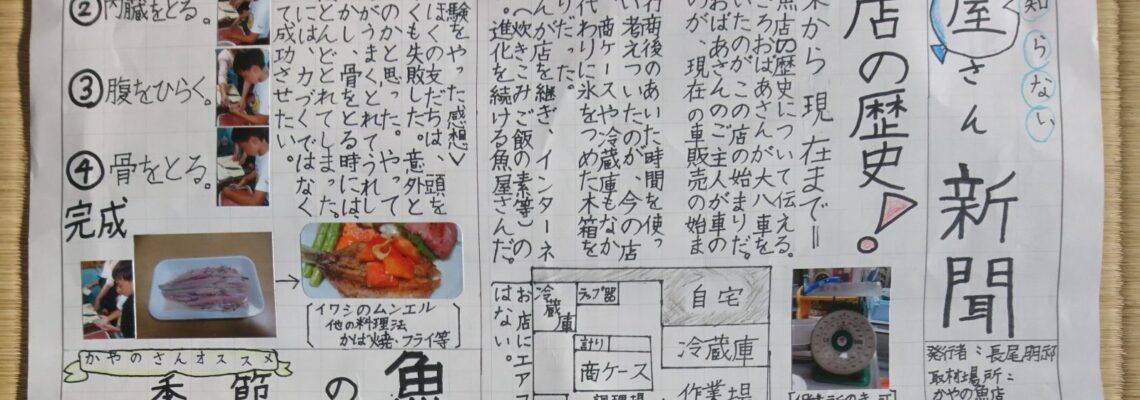 知らない
屋さん新聞
発行者:長尾朋邸
取材場所:
かやの魚店
店の歴史!
来から現在まで=
魚店の歴史について伝える。
ころおばあさんが大八車を
いたのが、この店の始まりだ。
おばあさんのご主人が車の
のが、現在の車販売の始ま
行商後のあいた時間を使っ
い考えついたのが、今の店
商ケースや冷蔵庫もなか
代わりに氷をつめた木箱を
りだった。
んが店を継ぎ、インターネ
へ炊きこみご飯の素等)の
。進化を続ける魚屋さんだ。
自宅
冷蔵庫
作業場
ラップ器
冷蔵庫
計り
商ケース
調理場
お店にエア
はない。
験をやった感想>
ぼくの友だちは、頭を
くも失敗した。意外と
のかと思った。やって
がうまくとれてうれし
かし、骨をとる時には、
とんどとれてしまっ
には、力づくではなく
て成功させたい。
②内臓をとる。
③腹をひらく。
④骨をとる。
完成
イワシのムンエル
他の料理法
かば焼・フライ等
かやのさんオススメ
季節の魚